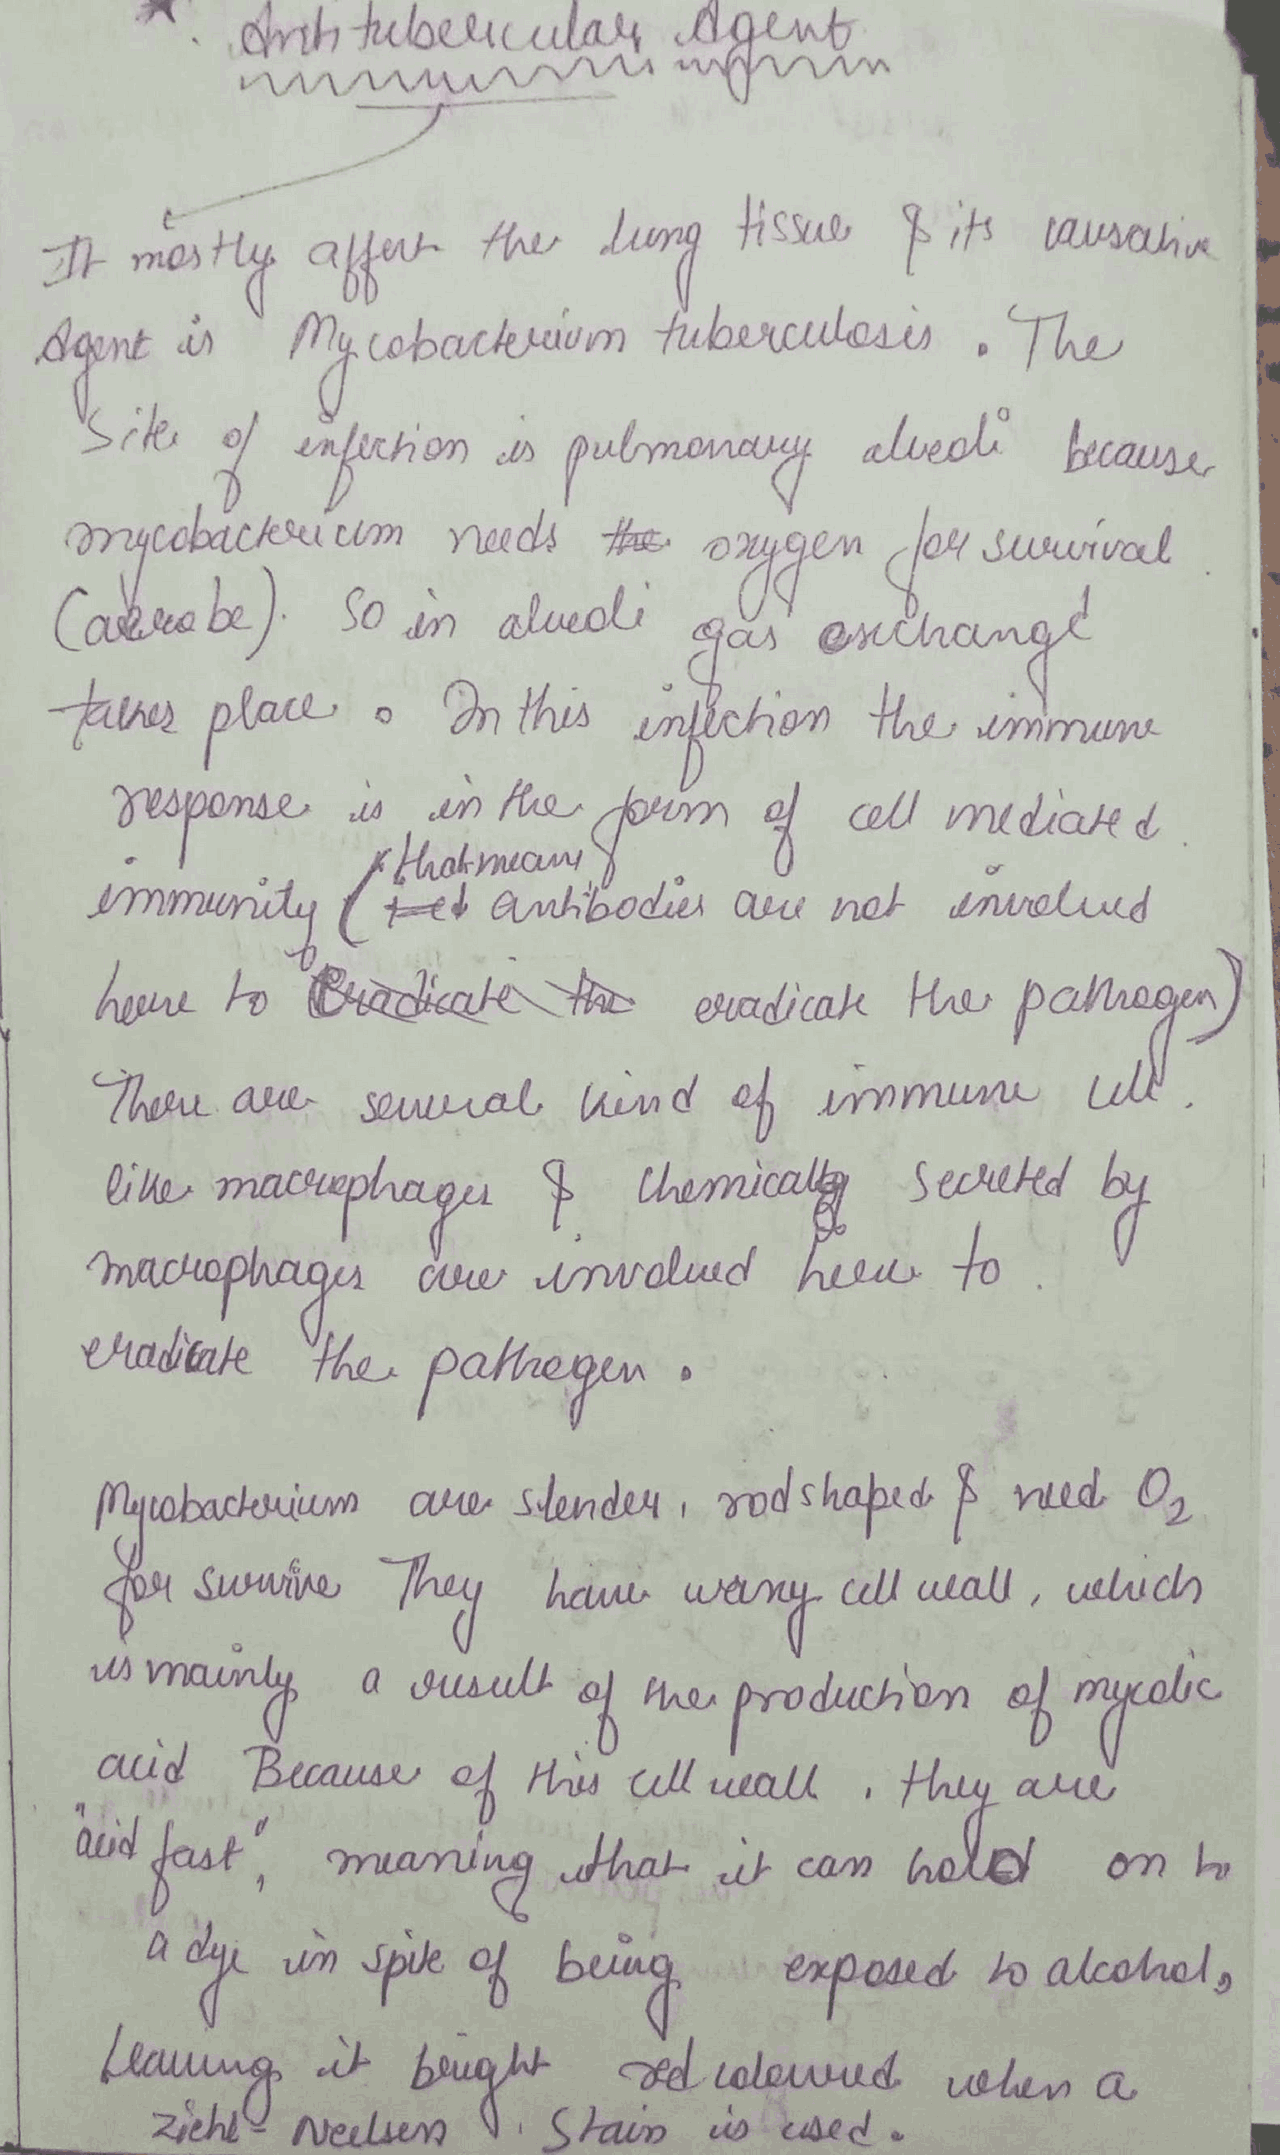 Antitubercular Agent
It mostly affect the lung tissue & its causative
Agent is Mycobacterium tuberculosis. The
Site of infection is pulmonary alveoli because
mycobacterium needs the oxygen for survival
(aerobe). So in alveoli gas exchange
takes place. In this infection the immune
response is in the form of cell mediated
that means
immunity ( antibodies are not involved
here to eradicate the eradicate the pathogen)
There are several kind of immune cell.
like macrophages & chemicals secreted by
macrophages are involved here to
eradicate the pathogen.
Mycobacterium are slender, rod shaped & need O2
for survive They have waxy cell wall, which
is mainly a result of the production of mycolic
acid Because of this cell wall, they are
"acid fast", meaning that it can hold on to
a dye in spite of being exposed to alcohol,
leaving it bright red coloured when a
Ziehl-Neelsen Stain is used.